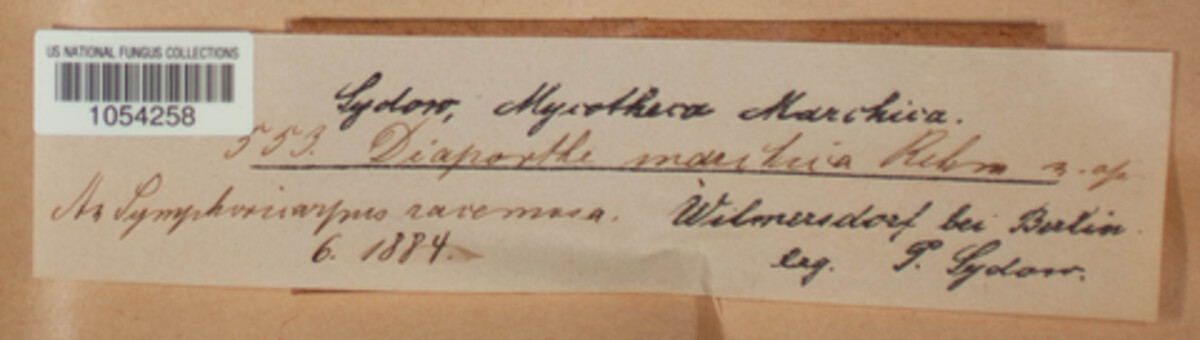 US NATIONAL FUNGUS COLLECTIONS
1054258
Sydow, Mycotheca Marchica.
553. Diaporthe marchica Rehm n. sp.
An Symphoricarpus racemosa.
6. 1884.
Wilmersdorf bei Berlin.
leg. P. Sydow.